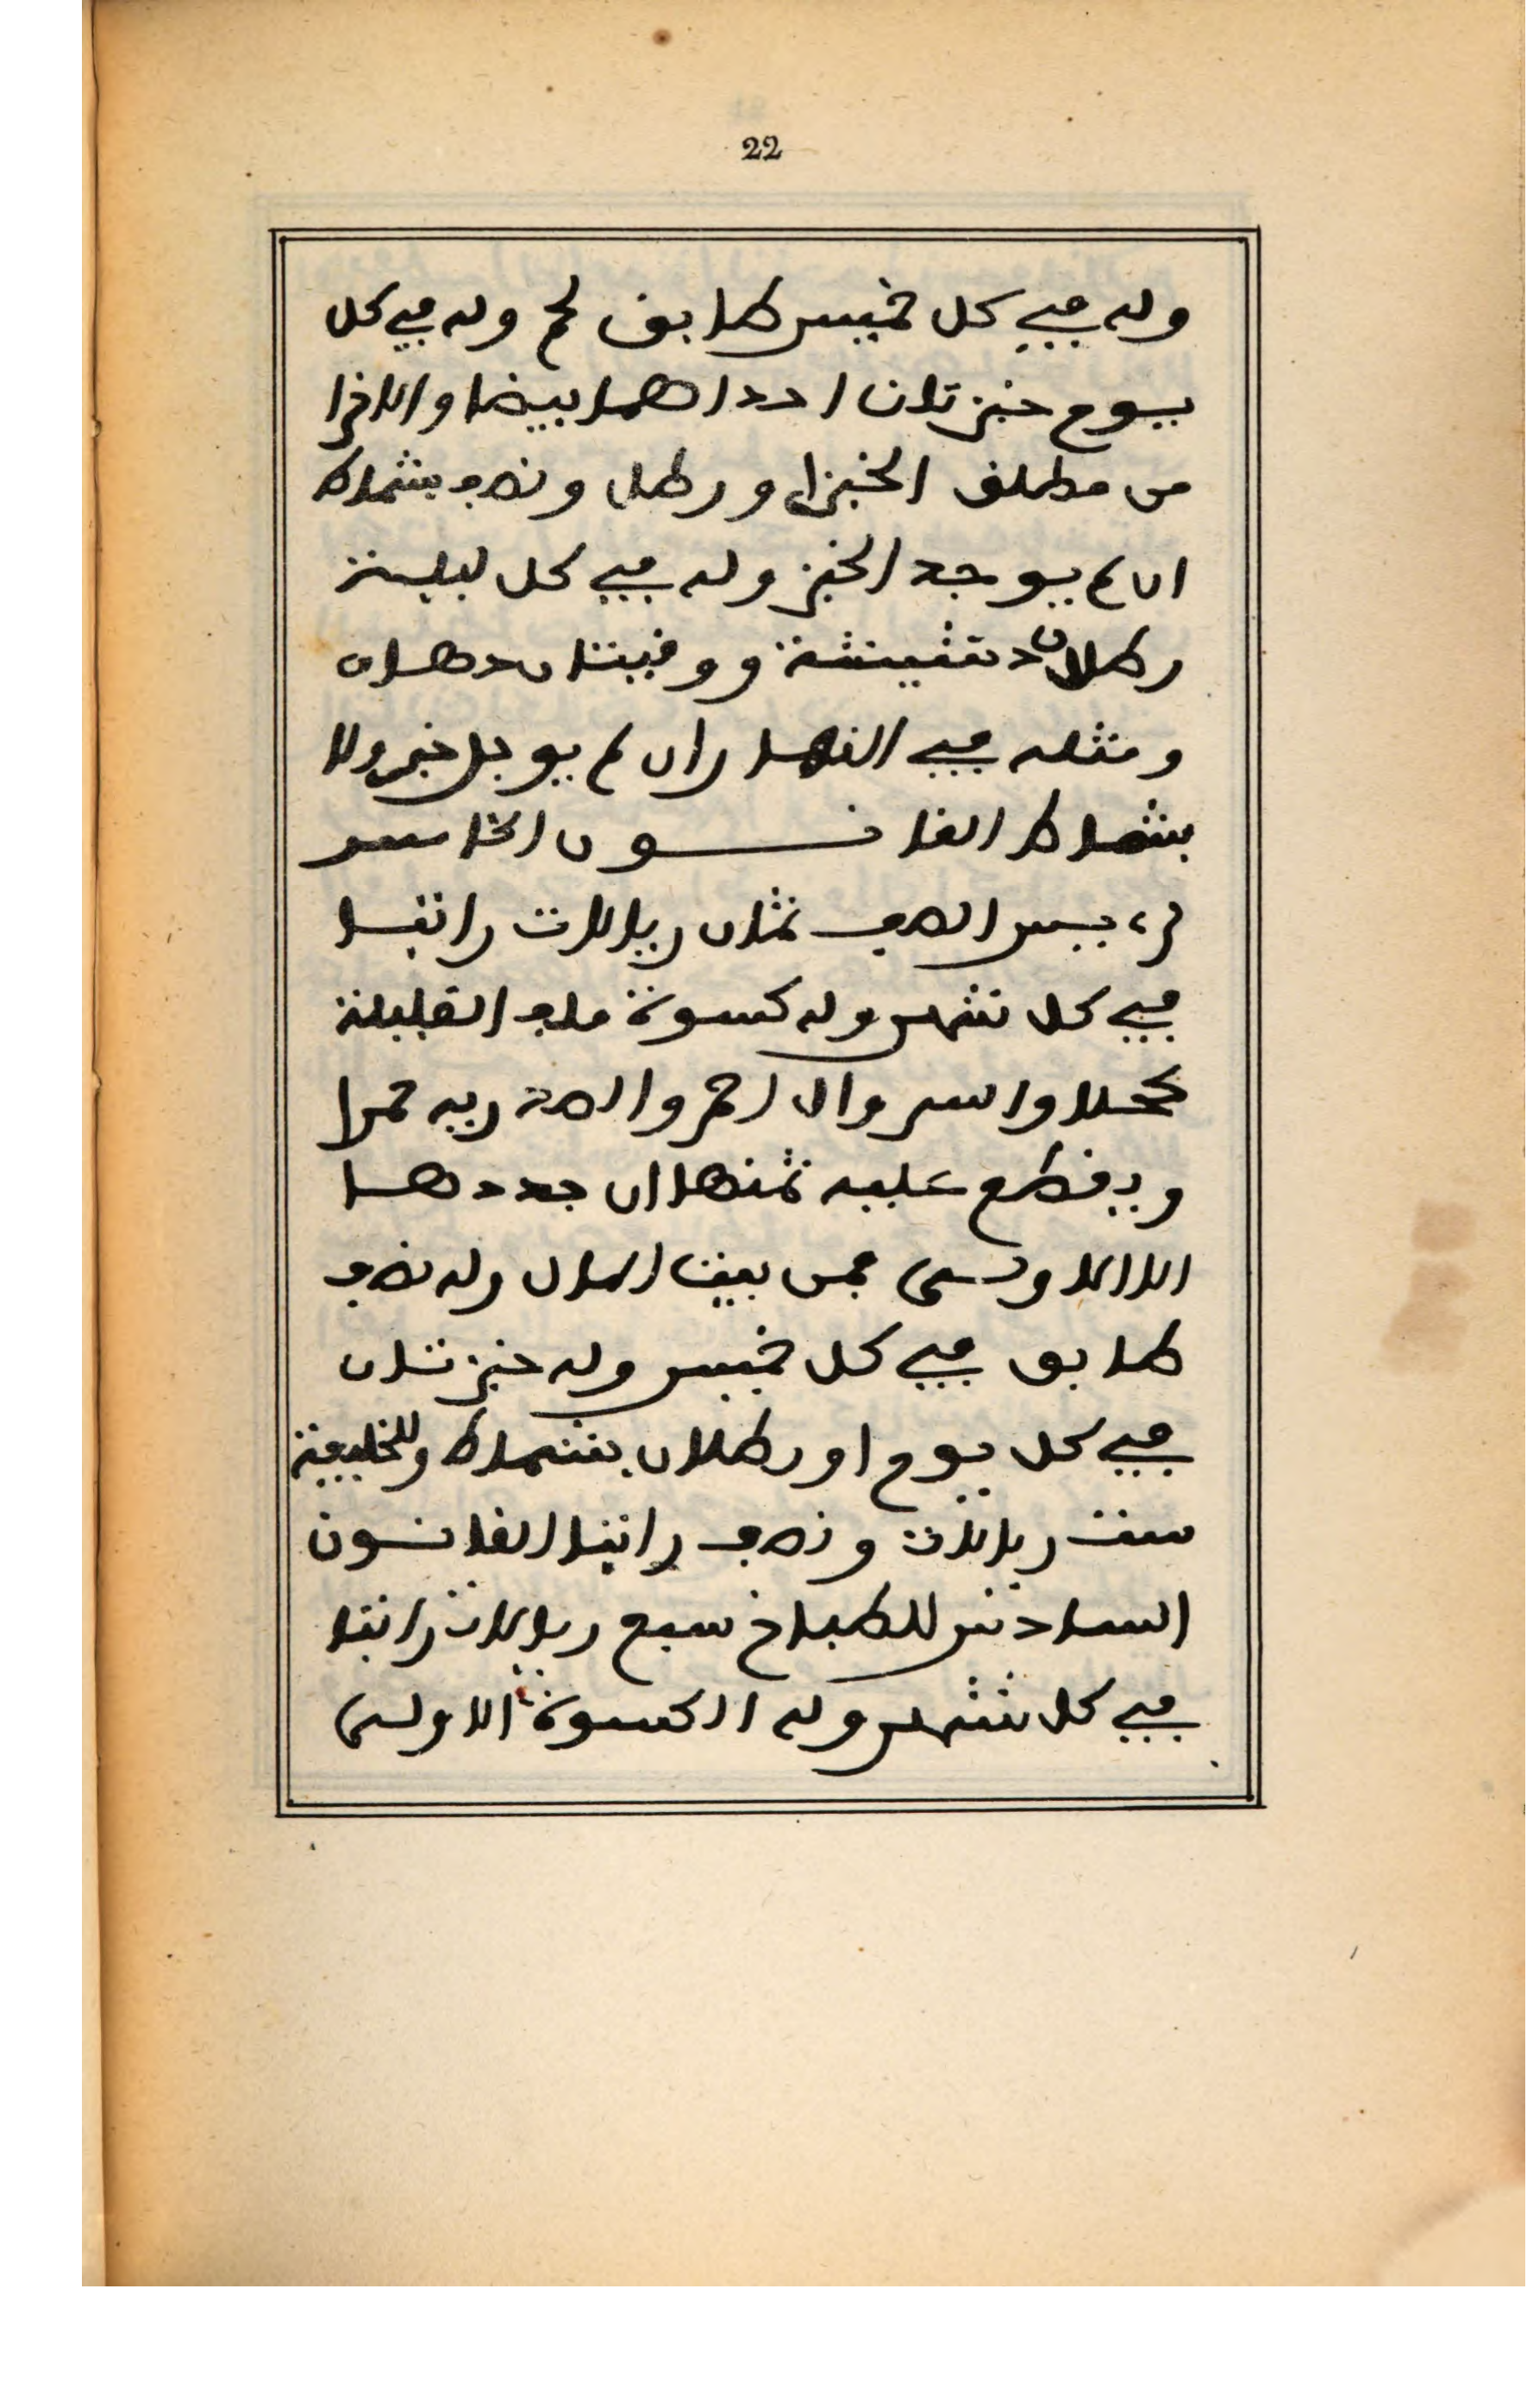 22
وله في كل خميس طابق لحم وله في كل
يوم خبزتان احداهما بيضا والاخرا
من مطلق الخبز او رطل ونصف بشماط
ان لم يوجد الخبز وله في كل ليلة
رطلان دشيشة ووقيتان دهان
ومثله في النهار ان لم يوجد خبز ولا
بشماط القانون الخامس
رءيس الصف ثمان ريالات راتبا
في كل شهر وله كسوة ملف القليلة
كحلا والسروال احمر والصدرية حمرا
ويقطع عليه ثمنها ان جددها
الا الاولى فمن بيت المال وله نصف
طابق في كل خميس وله خبزتان
في كل يوم او رطلان بشماط وللخليفة
ست ريالات ونصف راتبا القانون
السادس للطباخ سبع ريالات راتبا
في كل شهر وله الكسوة الاولى